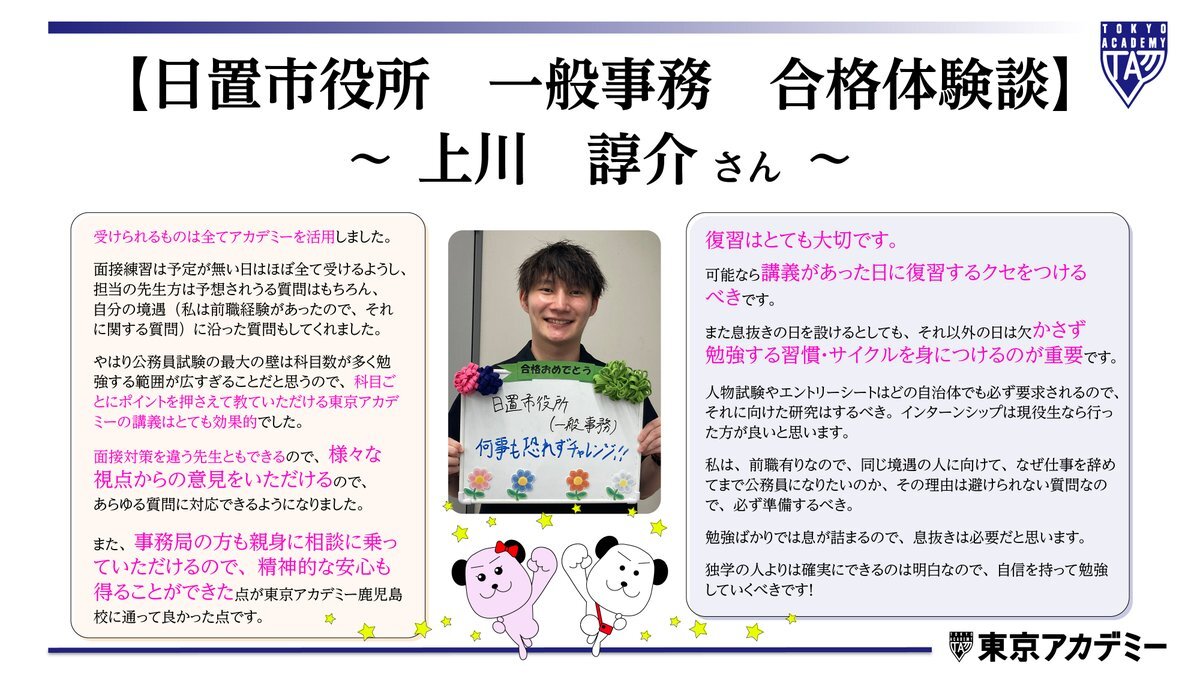 TOKYO
ACADEMY
TA
【日置市役所　一般事務　合格体験談】
～ 上川　諄介 さん ～
受けられるものは全てアカデミーを活用しました。
面接練習は予定が無い日はほぼ全て受けるようし、
担当の先生方は予想されうる質問はもちろん、
自分の境遇（私は前職経験があったので、それ
に関する質問）に沿った質問もしてくれました。
やはり公務員試験の最大の壁は科目数が多く勉
強する範囲が広すぎることだと思うので、科目ご
とにポイントを押さえて教ていただける東京アカデ
ミーの講義はとても効果的でした。
面接対策を違う先生ともできるので、様々な
視点からの意見をいただけるので、
あらゆる質問に対応できるようになりました。
また、事務局の方も親身に相談に乗っ
ていただけるので、精神的な安心も
得ることができた点が東京アカデミー鹿児島
校に通って良かった点です。
合格おめでとう
日置市役所
(一般事務)
何事も恐れずチャレンジ!!
復習はとても大切です。
可能なら講義があった日に復習するクセをつける
べきです。
また息抜きの日を設けるとしても、それ以外の日は欠かさず
勉強する習慣・サイクルを身につけるのが重要です。
人物試験やエントリーシートはどの自治体でも必ず要求されるので、
それに向けた研究はするべき。インターンシップは現役生なら行っ
た方が良いと思います。
私は、前職有りなので、同じ境遇の人に向けて、なぜ仕事を辞め
てまで公務員になりたいのか、その理由は避けられない質問なの
で、必ず準備するべき。
勉強ばかりでは息が詰まるので、息抜きは必要だと思います。
独学の人よりは確実にできるのは明白なので、自信を持って勉強
していくべきです!
東京アカデミー